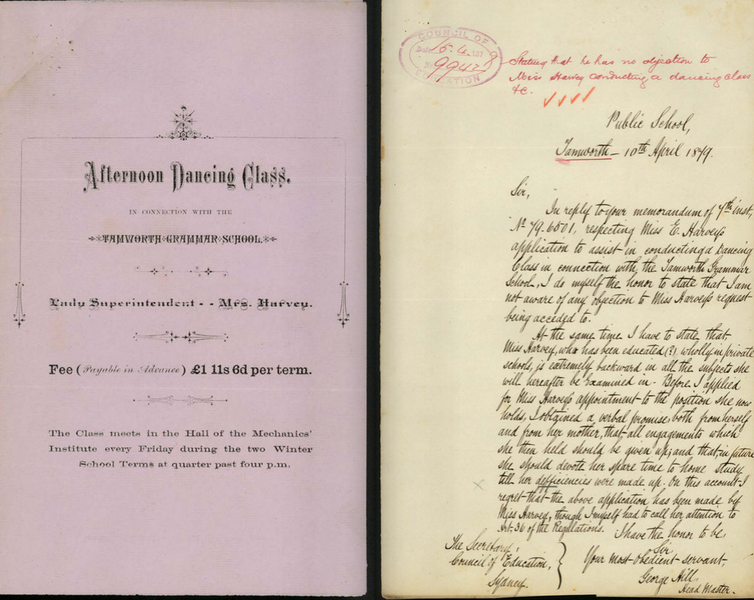 Afternoon Dancing Class.
IN CONNECTION WITH THE
TAMWORTH GRAMMAR SCHOOL.
Lady Superintendent - - Mrs. Harvey.
Fee (Payable in Advance) £1 11s 6d per term.
The Class meets in the Hall of the Mechanics'
Institute every Friday during the two Winter
School Terms at quarter past four p.m.
COUNCIL OF
EDUCATION
Stating that he has no objection to
Miss Harvey conducting a dancing class
&c.
Public School,
Tamworth — 10th April 1879.
Sir,
In reply to your memorandum of 7th inst,
No 79.6501, respecting Miss E. Harvey's
application to assist in conducting a Dancing
Class in connection with the Tamworth Grammar
School, I do myself the honor to state that I am
not aware of any objection to Miss Harvey's request
being acceded to.
At the same time I have to state that
Miss Harvey, who has been educated (?) wholly in private
schools, is extremely backward in all the subjects she
will hereafter be examined in. Before I applied
for Miss Harvey's appointment to the position she now
holds, I obtained a verbal promise both from herself
and from her mother, that all engagements which
she then held should be given up; and that, in future
she should devote her spare time to home study
till her deficiencies were made up. On this account I
regret that the above application has been made by
Miss Harvey, though I myself had to call her attention to
Art. 36 of the Regulations.
I have the honor to be
Sir
Your most obedient servant,
George Hill
Head Master.
The Secretary,
Council of Education,
Sydney.